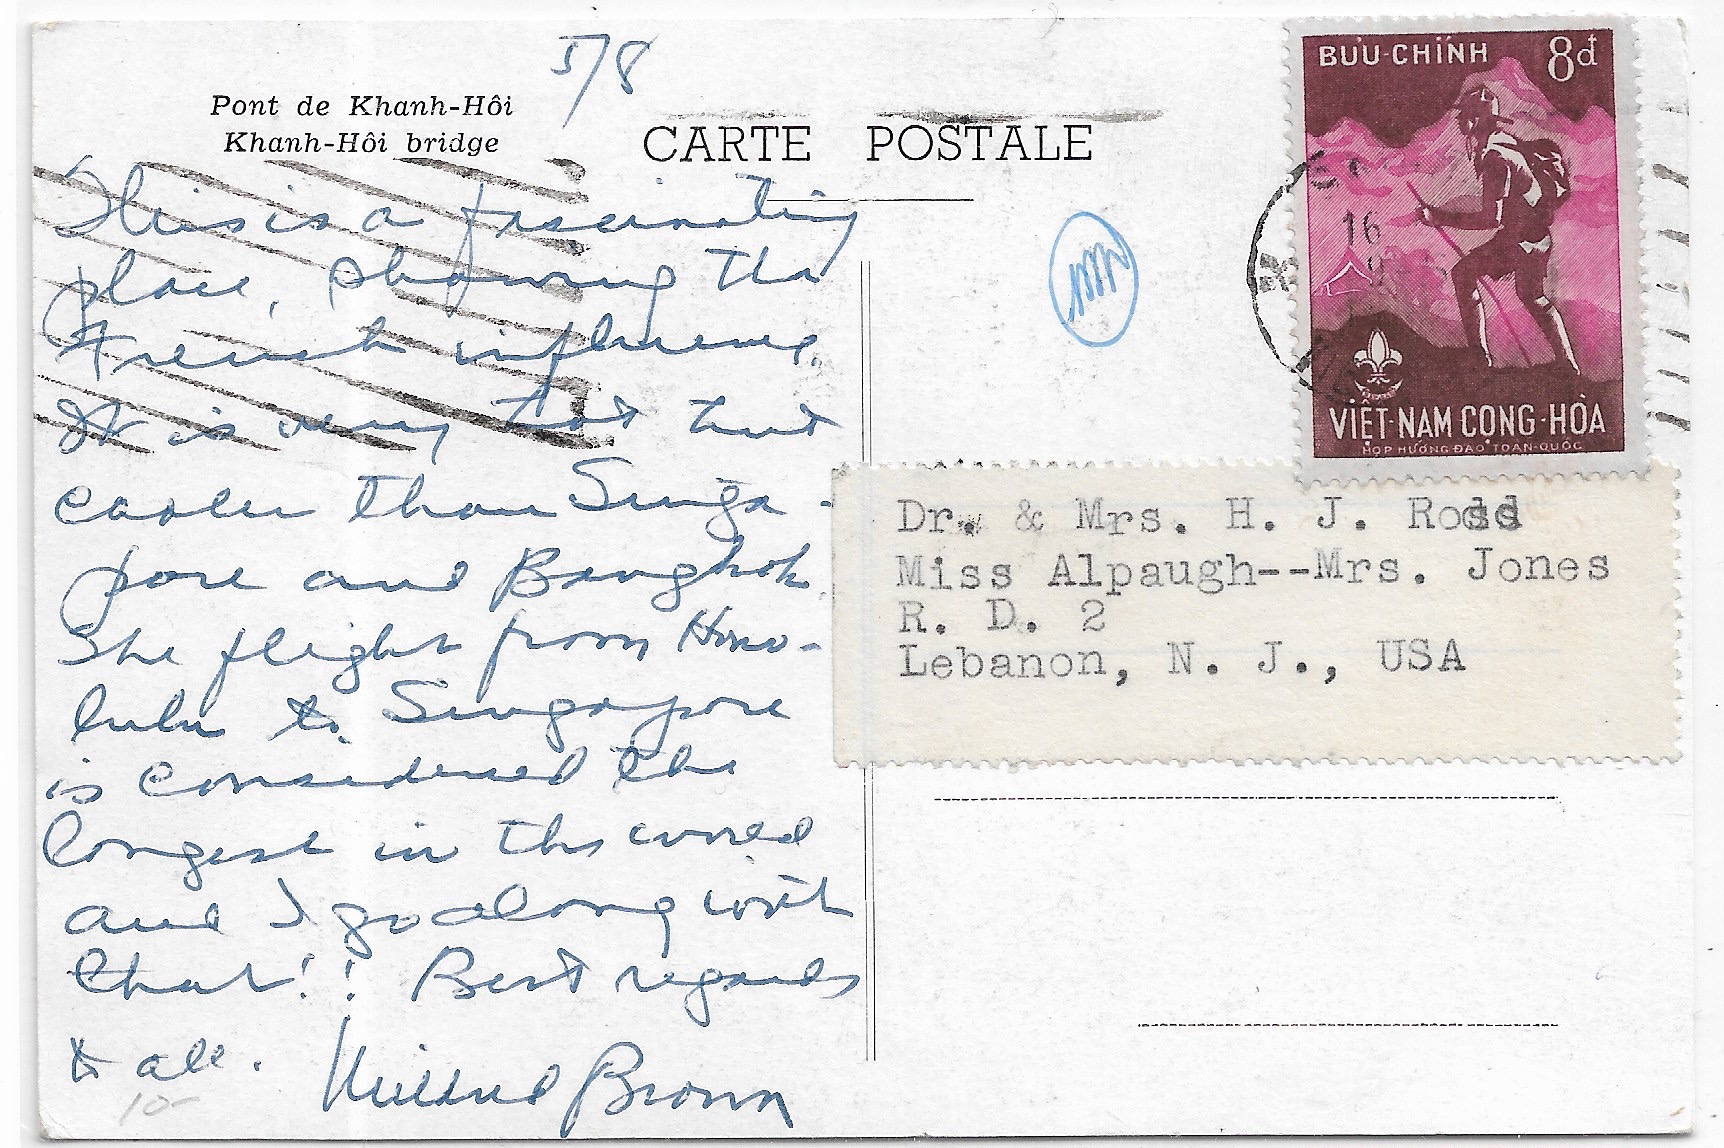 5/8
Pont de Khanh-Hôi
Khanh-Hôi bridge
CARTE POSTALE
This is a fascinating
place, showing the
French influence.
It is very hot but
cooler than Singa-
pore and Bangkok.
The flight from Hono-
lulu to Singapore
is considered the
longest in the world
and I go along with
that!! Best regards
to all.
Mildred Brown
10-
BƯU-CHÍNH 8đ
16
VIỆT-NAM CỘNG-HÒA
HỌP HƯỚNG-ĐẠO TOÀN-QUỐC
Dr. & Mrs. H. J. Ross
Miss Alpaugh--Mrs. Jones
R. D. 2
Lebanon, N. J., USA